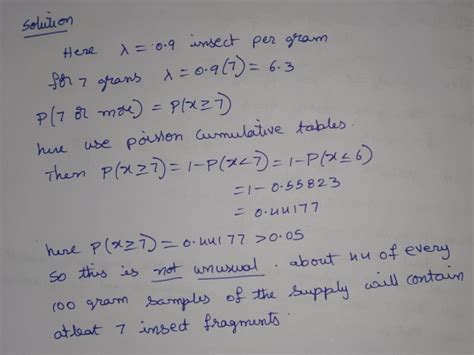 Solution
Here λ = 0.9 insect per gram
for 7 grans λ = 0.9(7) = 6.3
P(7 or more) = P(x≥7)
here use poision cumulative tables.
Then P(x≥7) = 1-P(x<7) = 1-P(x≤6)
= 1- 0.55823
= 0.44177
here P(x≥7) = 0.44177 > 0.05
So this is not unusual. about 44 of every
100 gram samples of the supply will contain
atleat 7 insect fragments.